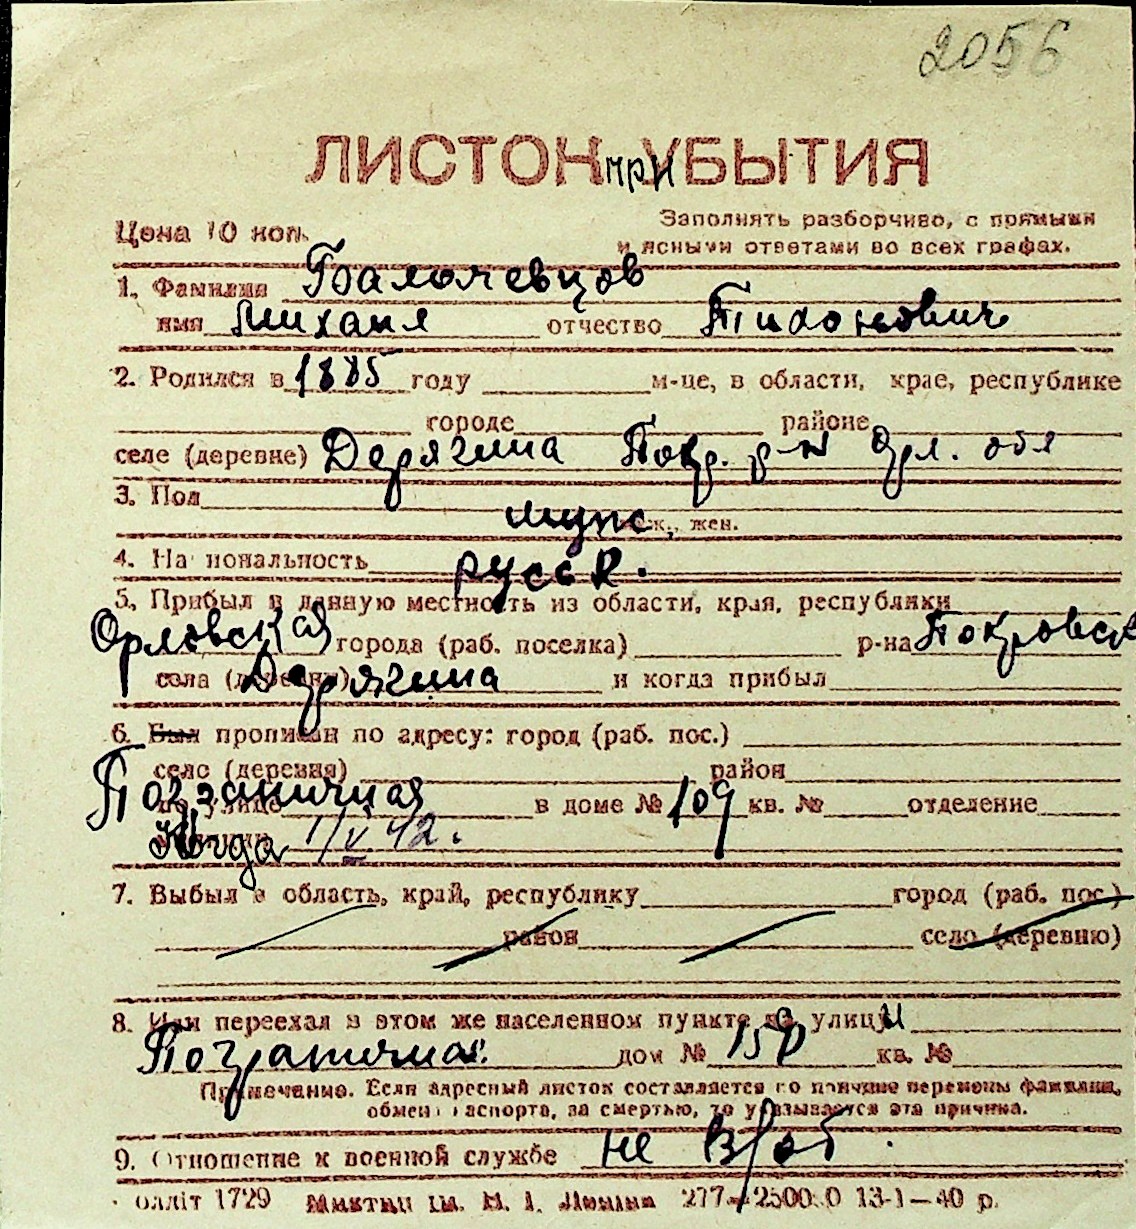 2056
ЛИСТОК при УБЫТИЯ
Цена 10 коп.
Заполнять разборчиво, с прямыми
и ясными ответами во всех графах.
1. Фамилия
имя Михаил отчество Тихонович
2. Родился в 1885 году м-це, в области, крае, республике
городе районе
селе (деревне) Дерягина Покр. р-н Орл. обл
3. Пол муж ж., жен.
4. Национальность русск.
5. Прибыл в данную местность из области, края, республики
Орловская города (раб. поселка) р-на Покровск
села (деревни) Дерягина и когда прибыл
6. Был прописан по адресу: город (раб. пос.)
село (деревня) район
Пограничная по улице в доме № 109 кв. № отделение
милиции Когда 1/V 42.
7. Выбыл в область, край, республику город (раб. пос.)
район село (деревню)
8. Или переехал в этом же населенном пункте на улицу
Пограничная дом № кв. №
Примечание. Если адресный листок составляется по причине перемены фамилии,
обмена паспорта, за смертью, то указывается эта причина.
9. Отношение к военной службе не в/об.
олліт 1729 ім. 13-1—40 р.